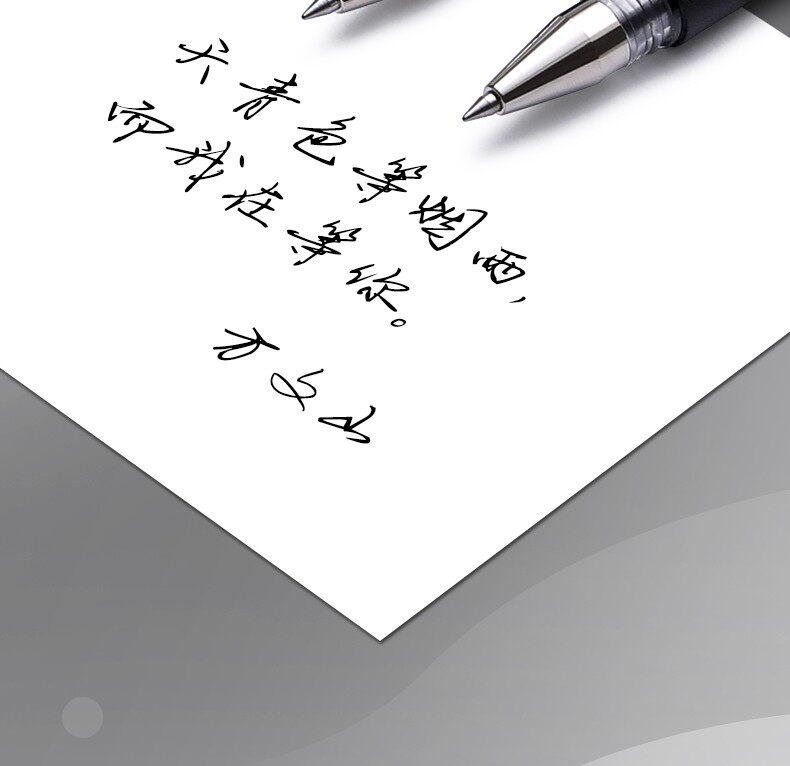 天青色等烟雨，
而我在等你。
方文山